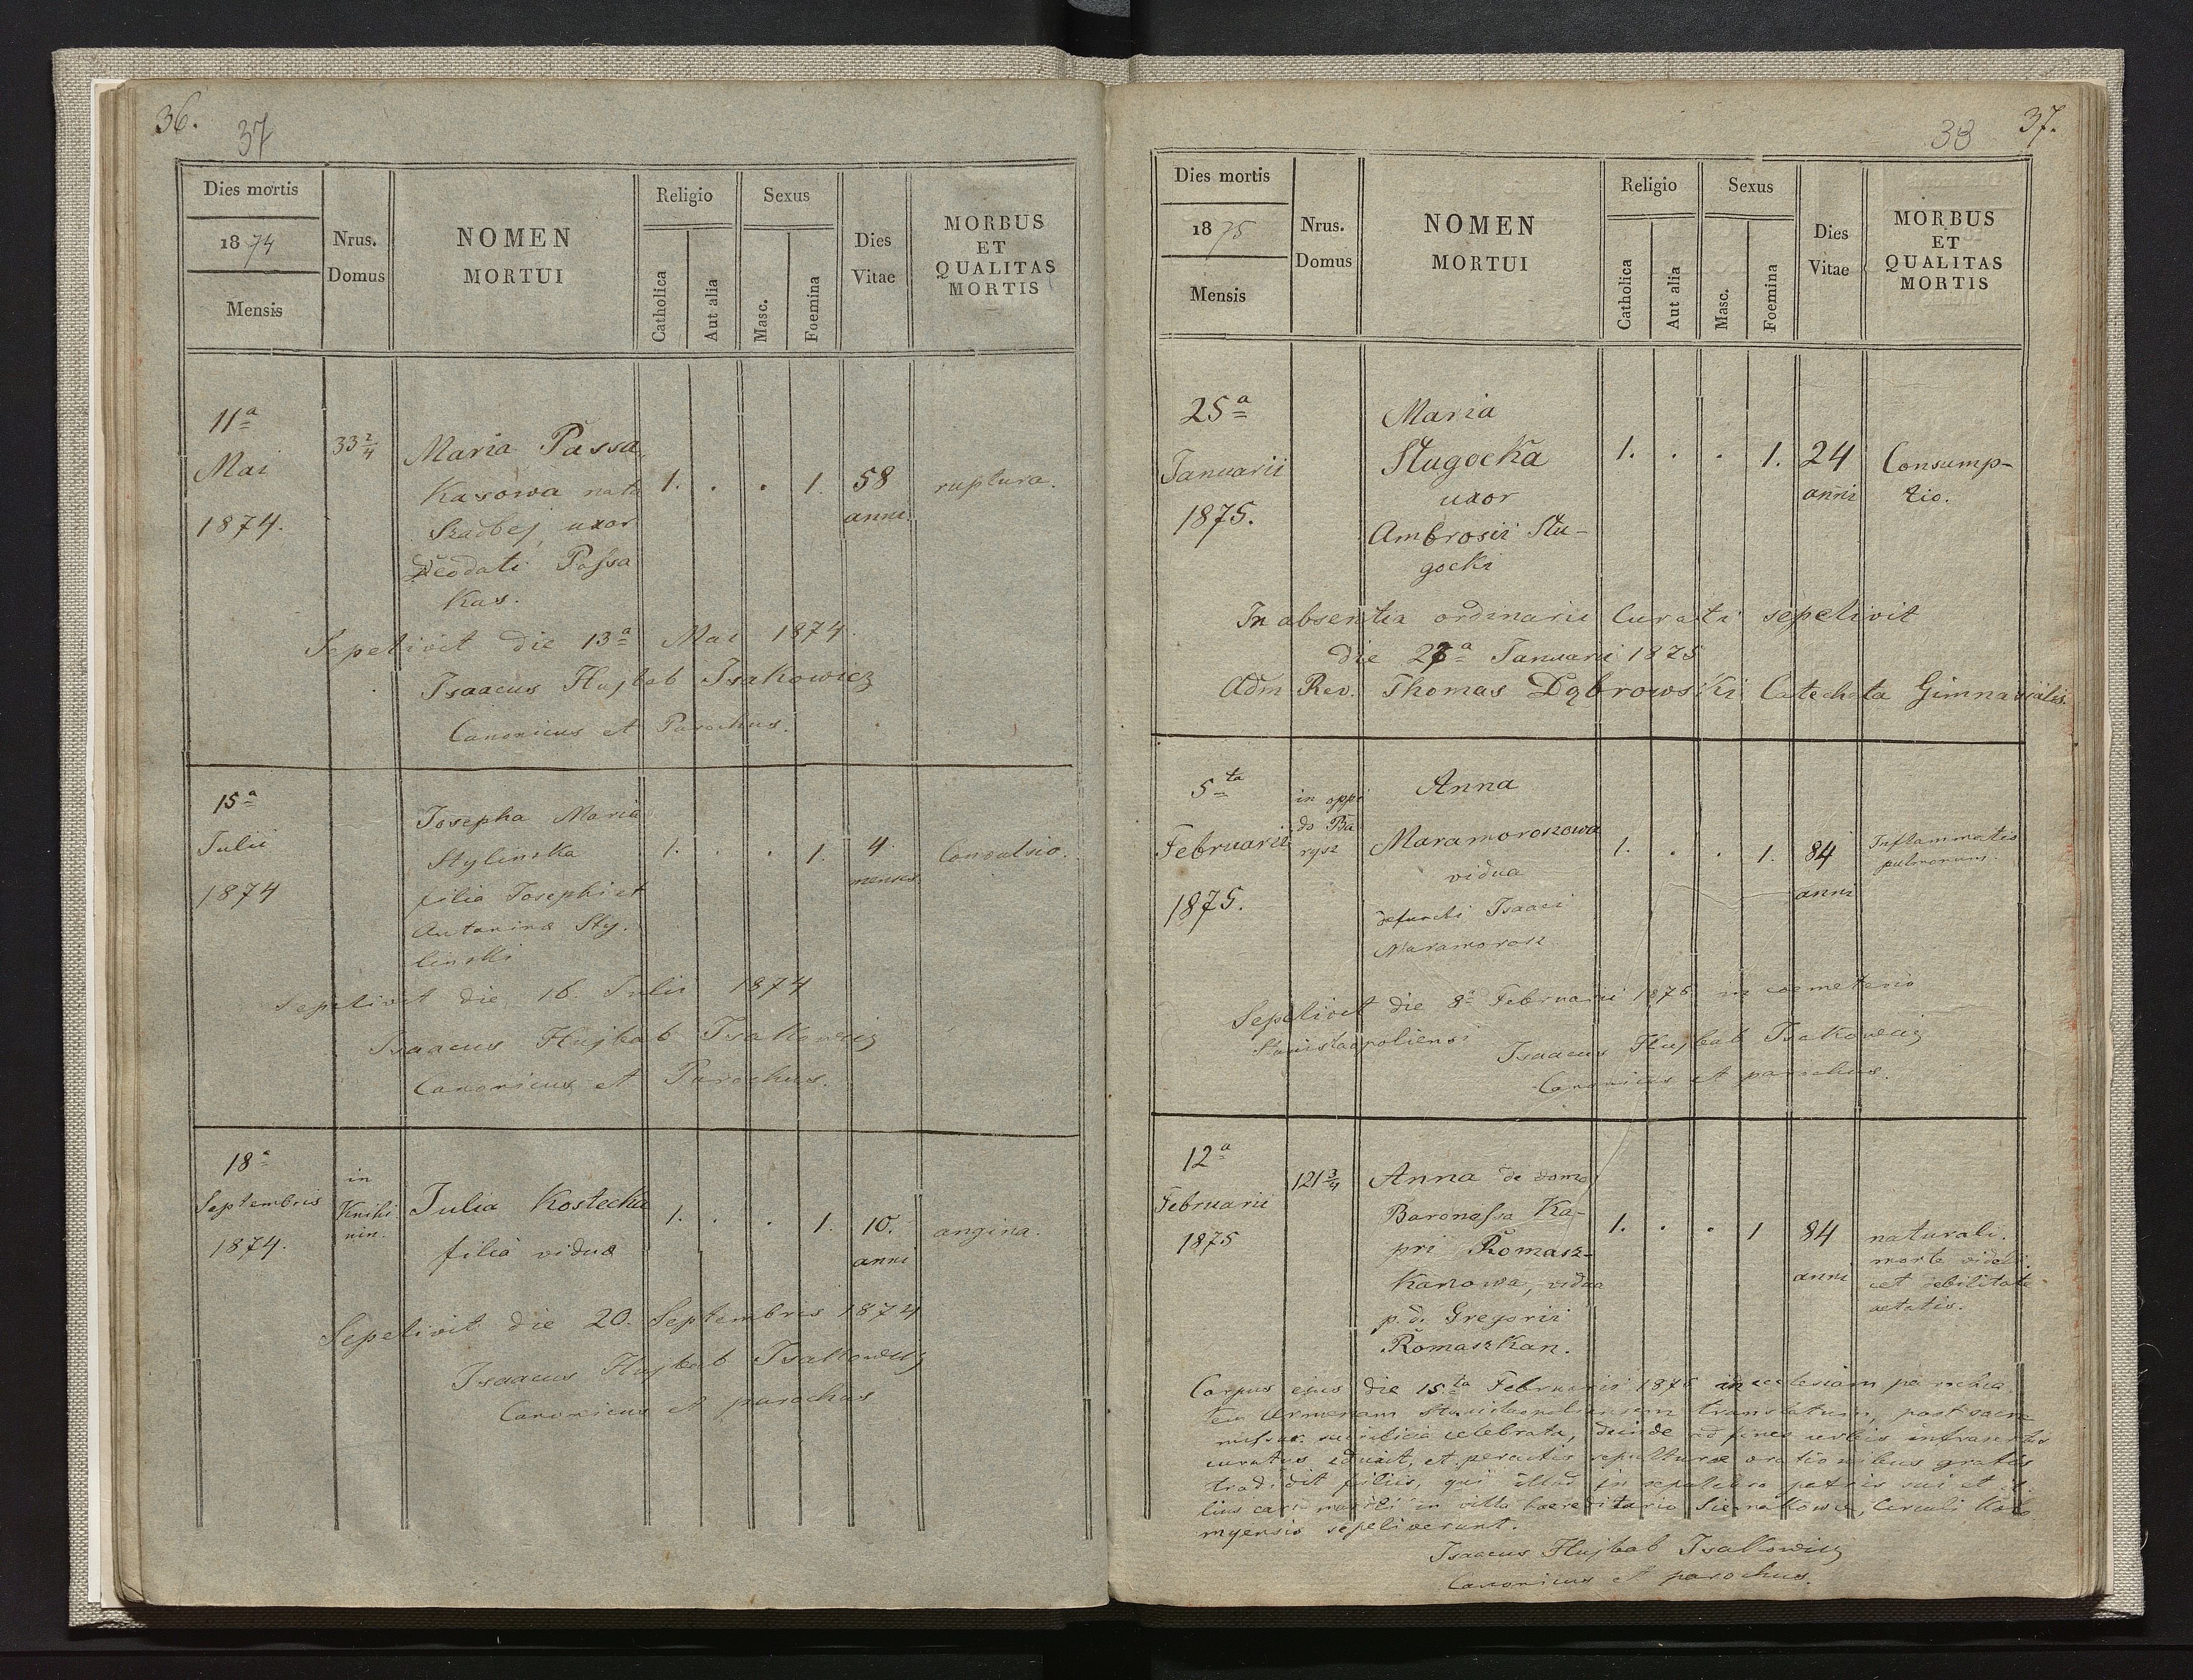 36.
37
Dies mortis
1874
Mensis
Nrus.
Domus
NOMEN
MORTUI
Religio
Catholica
Aut alia
Sexus
Masc.
Foemina
Dies
Vitae
MORBUS
ET
QUALITAS
MORTIS
11ª
Mai
1874.
33 2/4
Maria Passa
Kasowa nata
uxor
Deodati Passa
Kas.
1. . . 1.
58
anni
ruptura.
Sepelivit die 13ª Mai 1874.
Isaacus Hujbab Isakowicz
Canonicus et Parochus.
15ª
Julii
1874
Josepha Maria
Stylinska
filia Josephi et
Antoninæ Sty-
linski
1. . . 1.
4
menses
Convulsio.
Sepelivit die 16. Julii 1874
Isaacus Hujbab Isakowicz
Canonicus et Parochus.
18ª
Septembris
1874.
in
Knihi
nin.
Julia Kostecka
filia viduæ
1. . . 1.
10.
anni
angina.
Sepelivit die 20. Septembris 1874
Isaacus Hujbab Isakowicz
Canonicus et parochus
37.
38
Dies mortis
1875
Mensis
Nrus.
Domus
NOMEN
MORTUI
Religio
Catholica
Aut alia
Sexus
Masc.
Foemina
Dies
Vitae
MORBUS
ET
QUALITAS
MORTIS
25ª
Januarii
1875.
Maria
Sługocka
uxor
Ambrosii Słu-
gocki
1. . . 1.
24
anni
Consump-
tio.
In absentia ordinarii Curati sepelivit
die 27ª Januarii 1875
Adm. Rev. Thomas Dąbrowski Catecheta Gimnasialis.
5ta
Februarii
1875.
in oppi
do Ba
rysz
Anna
Maramoroszowa
vidua
defuncti Isaaci
Maramorosz
1. . . 1.
84
anni
Inflammatio
pulmonum.
Sepelivit die 8ª Februarii 1875 in coemeterio
Stanislaopoliensi
Isaacus Hujbab Isakowicz
Canonicus et parochus.
12ª
Februarii
1875
121 3/4
Anna de domo
Baronessa Ka-
pri Romasz-
Kanowa, vidua
p. d. Gregorii
RomaszKan.
1. . . 1
84
anni
naturali.
morte videli
cet debilitate
aetatis.
Corpus ejus die 15ta Februarii 1875 in ecclesiam parochia
lem Armenam Stanislaopoliensem translatum, post sacra
missae sacrificia celebrata, deinde ad fines urbis infrascriptus
curatus eduxit, et peractis sepulturæ orationibus
tradidit filiis, qui illud in sepulchro patris sui et il-
lius cari mariti in villa haereditaria Siemakowce, Circuli Kolo
myensis sepeliverunt.
Isaacus Hujbab Isakowicz
Canonicus et parochus.